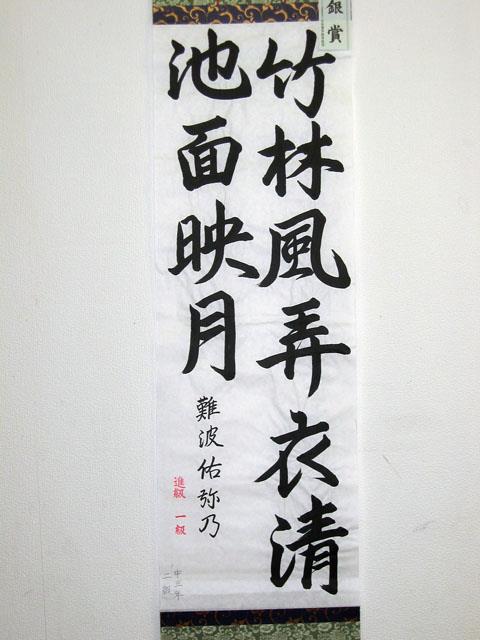 銀賞
竹林風弄衣清
池面映月
難波佑弥乃
進級 一級
中三年
二組